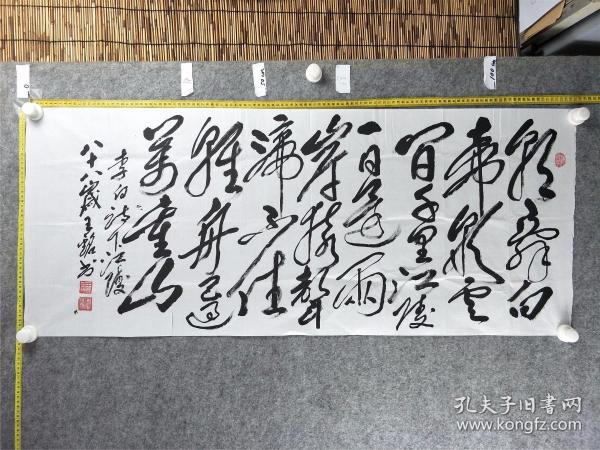 朝辭白
帝彩云
间千里江陵
一日還兩
岸猿聲
啼不住
輕舟已過
萬重山
李白诗下江陵
八十八歲王銘书
孔夫子旧书网
www.kongfz.com